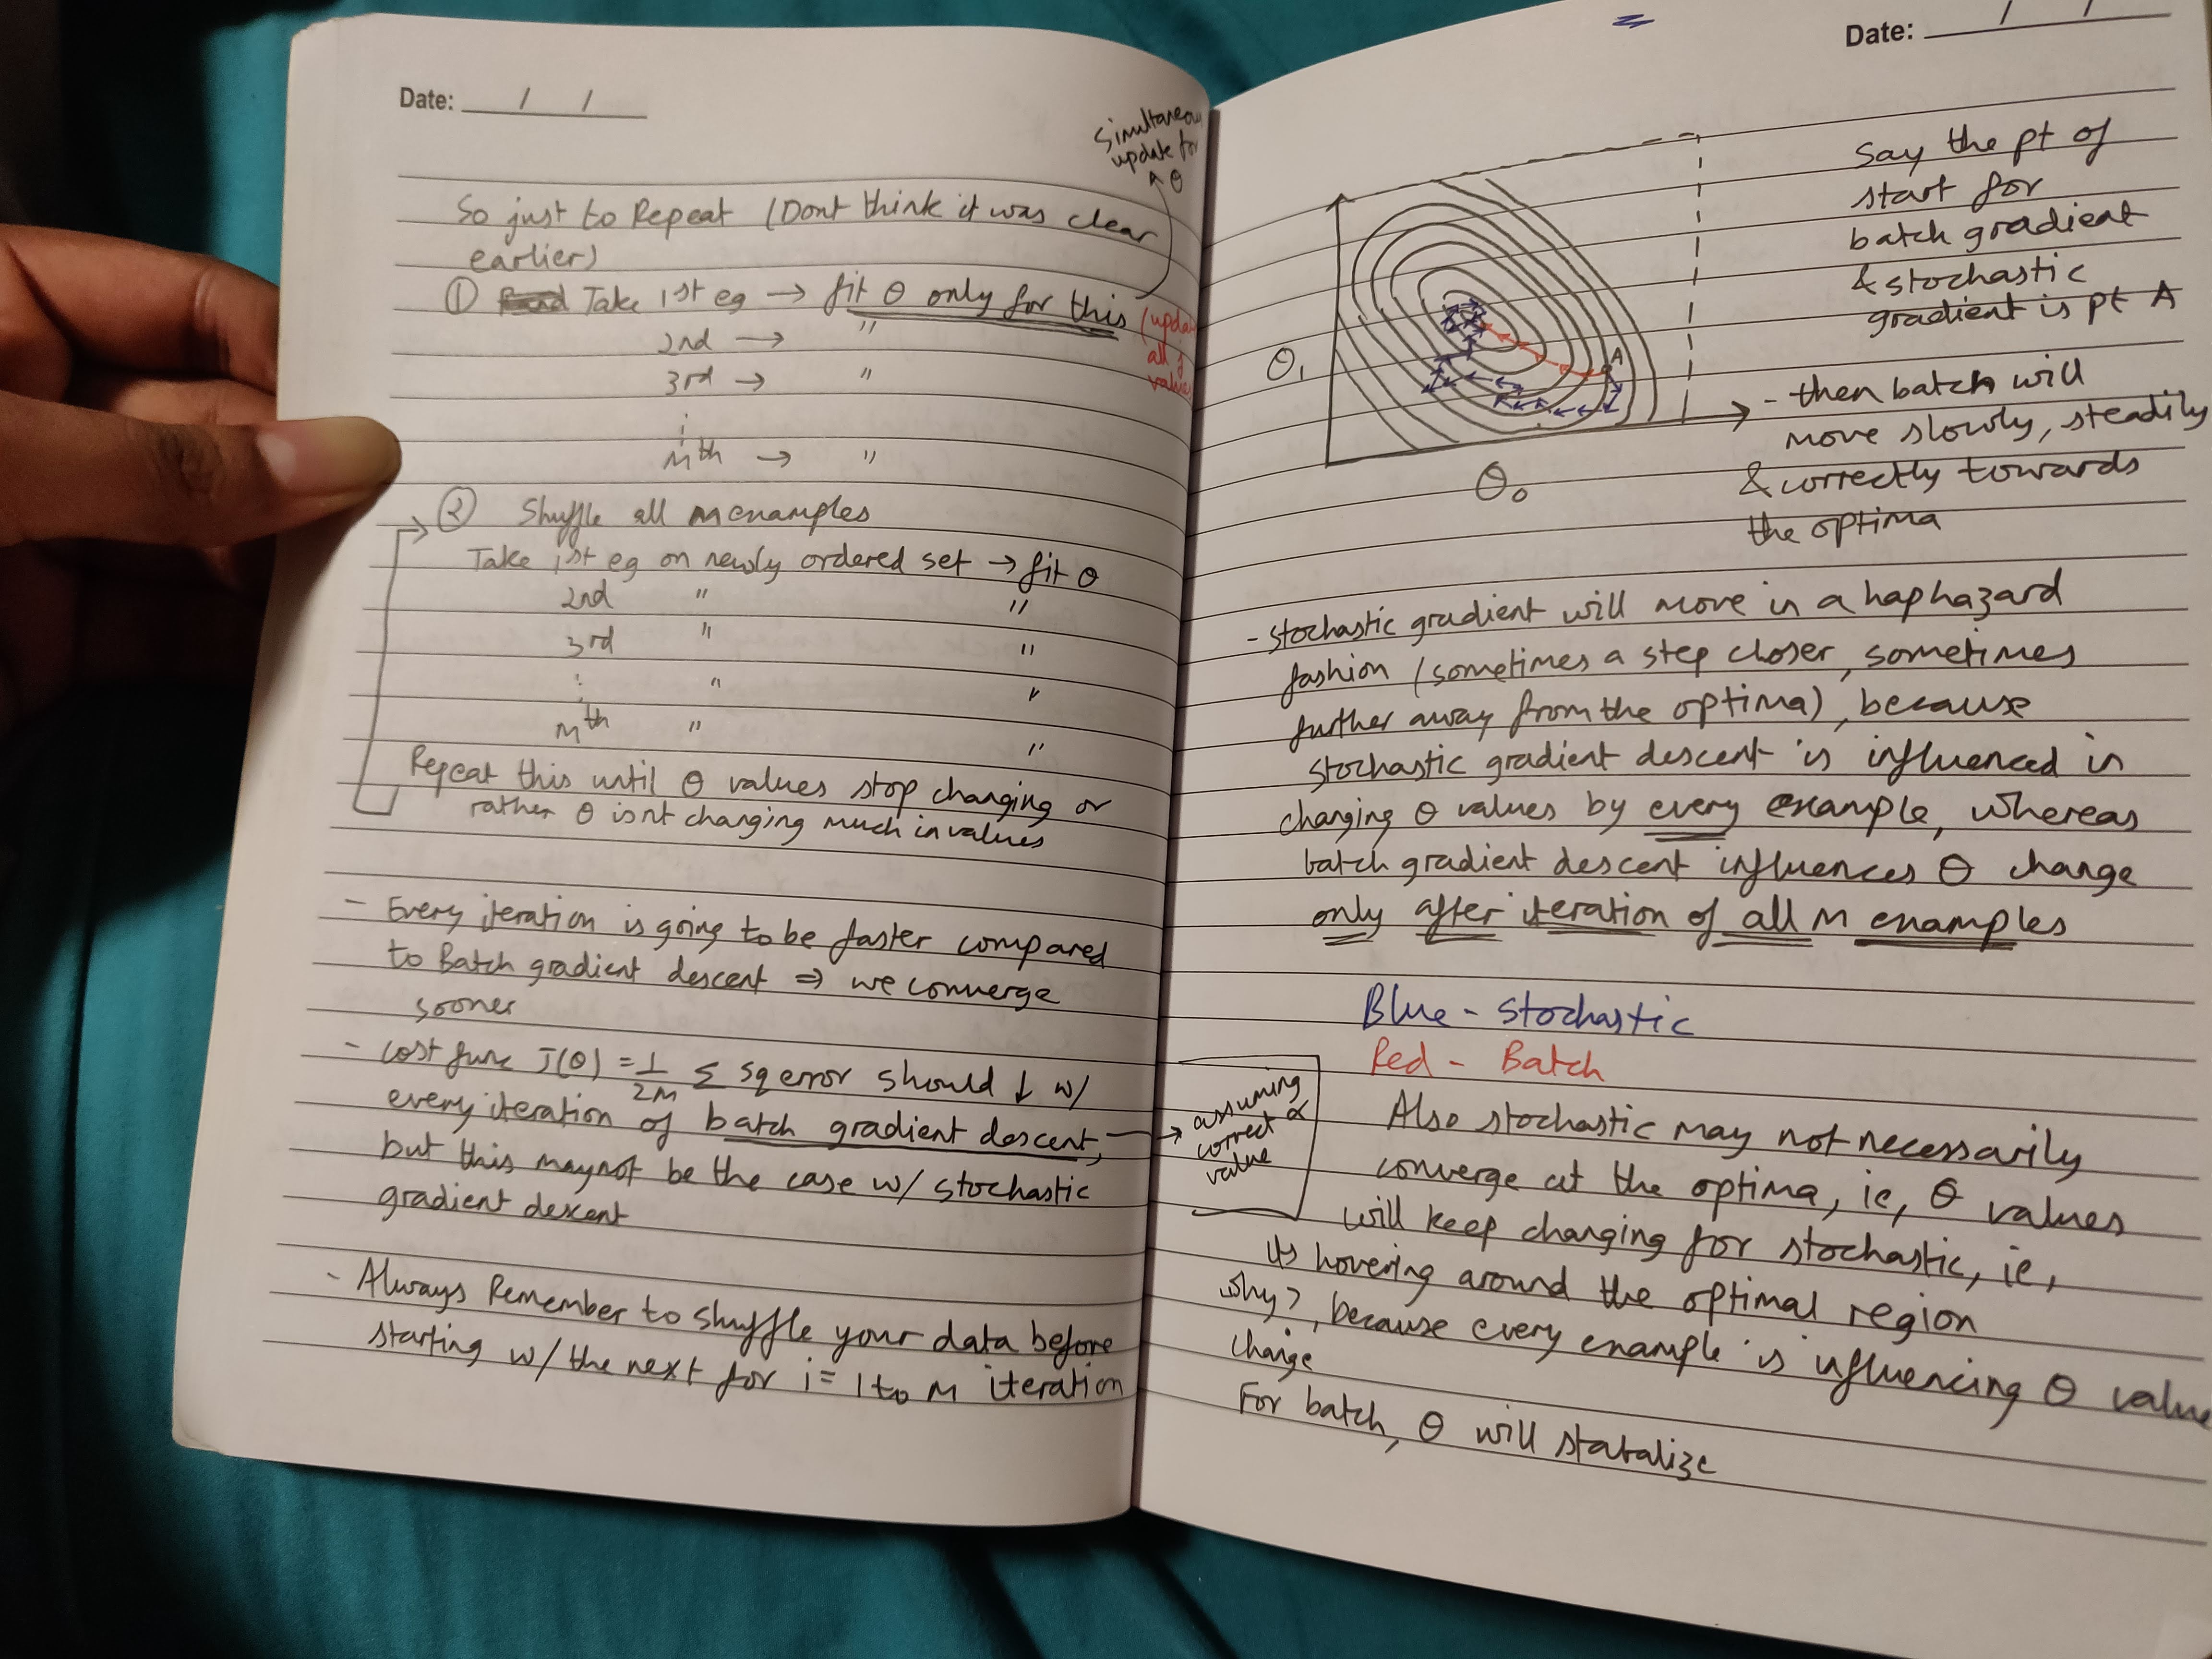 Date: / /
Simultaneous
update for
θ
So just to Repeat (Dont think it was clear
earlier)
① Take 1st eg → fit θ only for this (update
all j
values
2nd → "
3rd → "
⋮
Mth → "
② Shuffle all M examples
Take 1st eg on newly ordered set → fit θ
2nd " "
3rd " "
⋮ " "
Mth " "
Repeat this until θ values stop changing or
rather θ isnt changing much in values
- Every iteration is going to be faster compared
to Batch gradient descent ⇒ we converge
sooner
- Cost func J(θ) = 1/2M Σ sq error should ↓ w/
every iteration of batch gradient descent,
but this may not be the case w/ stochastic
gradient descent
- Always Remember to shuffle your data before
starting w/ the next for i = 1 to M iteration
Date: / /
θ₁
A
θ₀
Say the pt of
start for
batch gradient
& stochastic
gradient is pt A
- then batch will
move slowly, steadily
& correctly towards
the optima
- stochastic gradient will move in a haphazard
fashion (sometimes a step closer, sometimes
further away from the optima), because
stochastic gradient descent is influenced in
changing θ values by every example, whereas
batch gradient descent influences θ change
only after iteration of all M examples
Blue - Stochastic
Red - Batch
→ assuming
correct α
value
Also stochastic may not necessarily
converge at the optima, ie, θ values
will keep changing for stochastic, ie,
its hovering around the optimal region
why?, because every example is influencing θ value
change
For batch, θ will stabalize